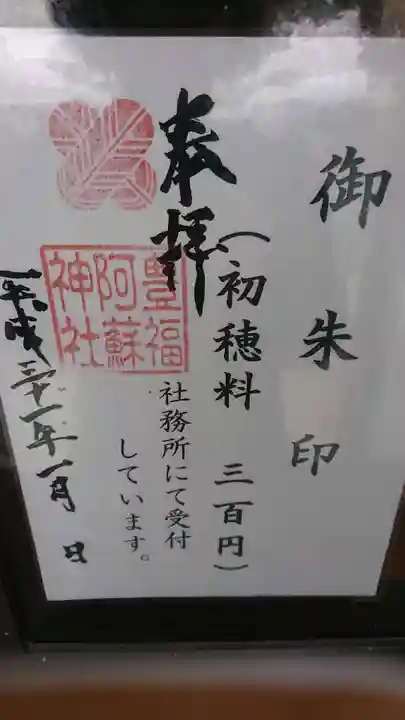 御朱印
(初穂料 三百円)
奉拝
社務所にて受付
しています。
豊福
阿蘇
神社
平成三十一年一月 日